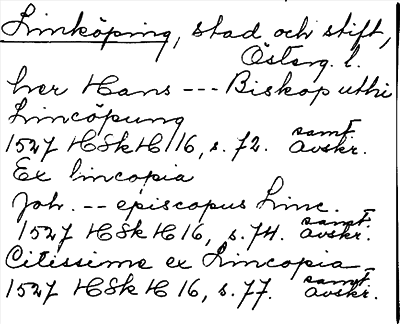 Linköping, stad och stift,
Österg. l.
her Hans --- Biskop uthi
Lincöpung
1527 HSkH 16, s. 72. samt. avskr.
Ex lincopia
Joh. -- episcopus Linc.
1527 HSkH 16, s. 74. samt. avskr.
Citissime ex Lincopia
1527 HSkH 16, s. 77. samt. avskr.